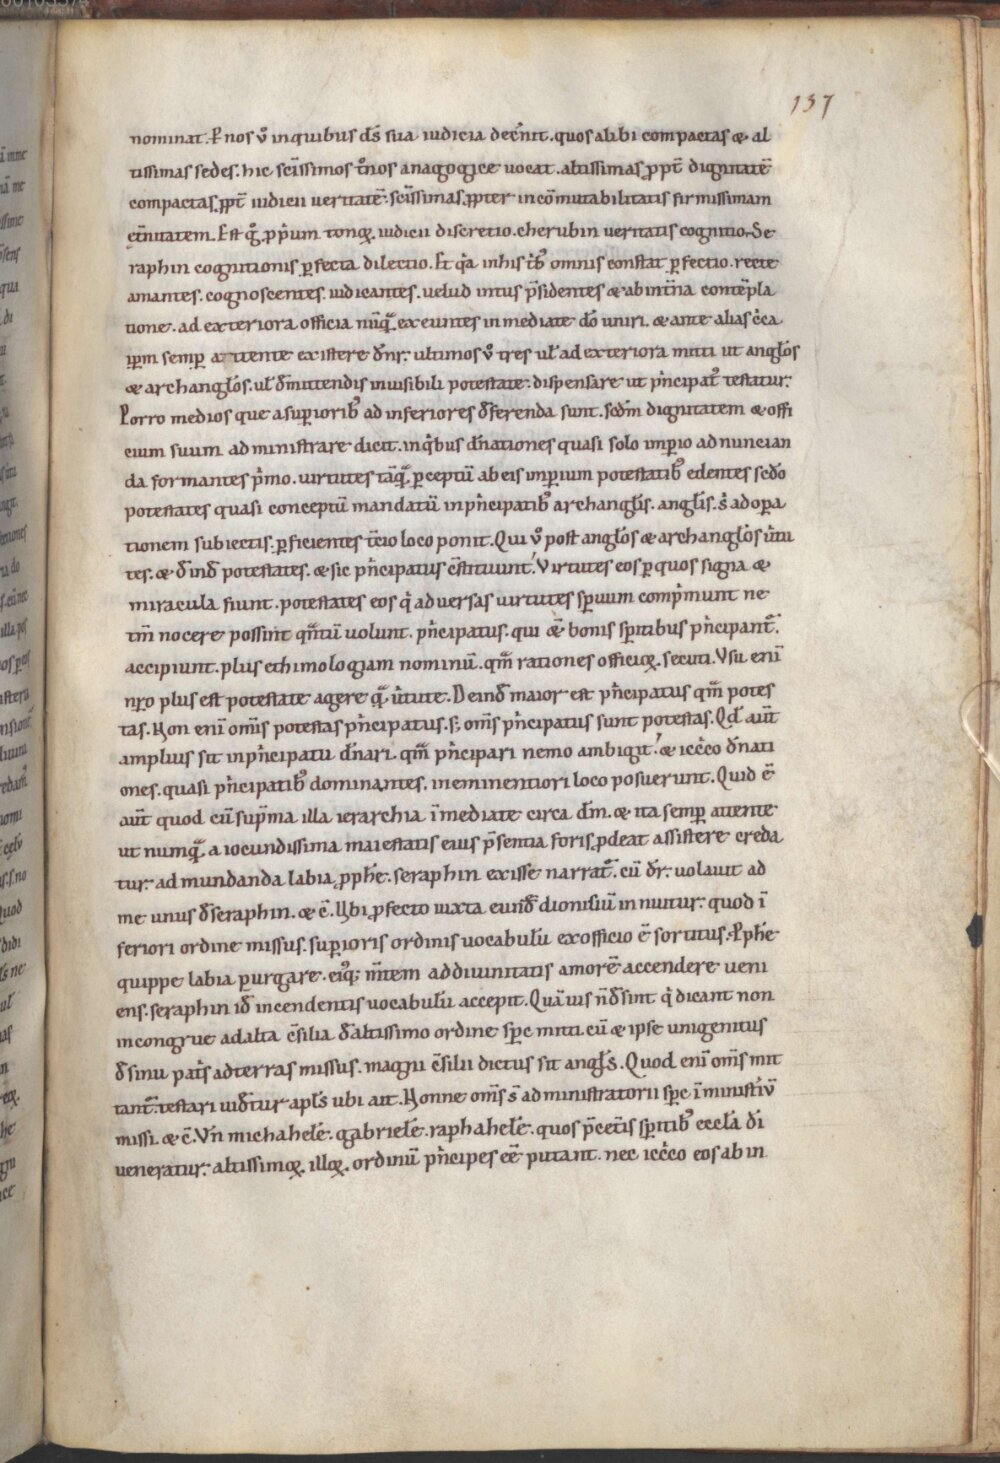 137
nominat. Tͬnos ṽ in quibus ds̄ sua iudicia decͬnit. quos alibi compactas & al
tissimas sedes. hic scīssimos tͬnos anagogice uocat. altissimas ꝓpt̄ dignitatē
compactas. ꝓpt̄ iudicii ueritatē. scīssimas. ꝓpter incōmutabilitatis firmissimam
et̄nitatem. Est gͦ ꝓpͥum tonoꝝ. iudicii discretio. cherubin ueritatis cognitio. Se
raphin cognitionis ꝑfecta dilectio. Et qͥa in his tͥbꝰ omnis constat ꝑfectio. recte
amantes. cognoscentes. iudicantes. uelud intus p̄sidentes & ab int̄na contēpla
tione. ad exteriora officia nūqͣ̄ exeuntes inmediate dō uniri. & ante alias cͥca
ip̄m semꝑ attente existere dn̄r. ultimos ṽ tres ul̄ ad exteriora mitti ut angl̄os
& archangl̄os. ul̄ de mittendis inuisibili potestate. dispensare ut pͥncipatꝰ testatur.
Porro medios que a suꝑioribꝰ ad inferiores deferenda sunt. scd̄m dignitatem & offi
cium suum administrare dicit. in qͥbus dn̄ationes quasi solo imꝑio adnuncian
da formantes pͥmo. uirtutes tāqͣ̄ ꝑceptū ab eis imꝑium potestatibꝰ edentes scd̄o
potestates quasi conceptū mandatū in pͥncipatibꝰ archangl̄is. angl̄is. sͥ ad oꝑa
tionem subiectis. ꝑficientes t̄cio loco ponit. Qui ṽ post angl̄os & archangl̄os uͥtu
tes. & deinde potestates. & sic pͥncipatus c̄stituunt. Virtutes eos ꝑ quos signa &
miracula fiunt. potestates eos qͥ aduersas uirtutes spūum compͥmunt ne
tm̄ nocere possint qͣntū uolunt. pͥncipatus. qui & bonis sp̄itibus pͥncipantͬ.
accipiunt. plus ethimologiam nominū. qͣm rationes officioꝝ. secuti. Vsu enī
nr̄o plus est potestate agere qͣ̄ uͥtute. Deinde maior est pͥncipatus qͣm potes
tas. Non enī om̄is potestas pͥncipatus. sꝫ om̄is pͥncipatus sunt potestas. Qd̄ aut̄
amplius sit in pͥncipatu dn̄ari. qͣm pͥncipari nemo ambigit. & iccͥco dn̄ati
ones. quasi pͥncipatibꝰ dominantes. in eminentiori loco posuerunt. Quid ē
aut̄ quod cū sup̄ma illa ierarchia īmediate circa dm̄. & ita semꝑ attente
ut numqͣ̄ a iocundissima maiestatis eius p̄sentia foris ꝓdeat assistere creda
tur. ad mundanda labia ꝓph̄e. seraphin exisse narratͬ. cū dr̄. uolauit ad
me unus de seraphin. & c̄. Vbi ꝓfecto iuxta eundē dionisiū innuitur. quod ī
feriori ordine missus. suꝑioris ordinis uocabulū ex officio ē sortitus. Ꝓph̄e
quippe labia purgare. eiꝰqꝫ mn̄tem ad diuinitatis amorē accendere ueni
ens. seraphin id ē incendentis uocabulū accepit. Quāuis n̄ desint qͥ dicant non
incongrue ad alta c̄silia de altissimo ordine spc̄ mitti. cū & ipse unigenitus
de sinu patͥs ad terras missus. magni c̄silii dictus sit angl̄s. Quod enī om̄s mit
tantͬ. testari uidetur apl̄s ubi ait. Nonne om̄s s̄ administratorii spc̄ ī ministīū
missi. & c̄. Vn̄ michahelē. gabrielē. raphahelē. quos p̄ cet̄is sp̄itibꝰ eccl̄a di
ueneratur. altissimoꝝ. illoꝝ. ordinū pͥncipes eē putant. nec iccͥco eos ab in